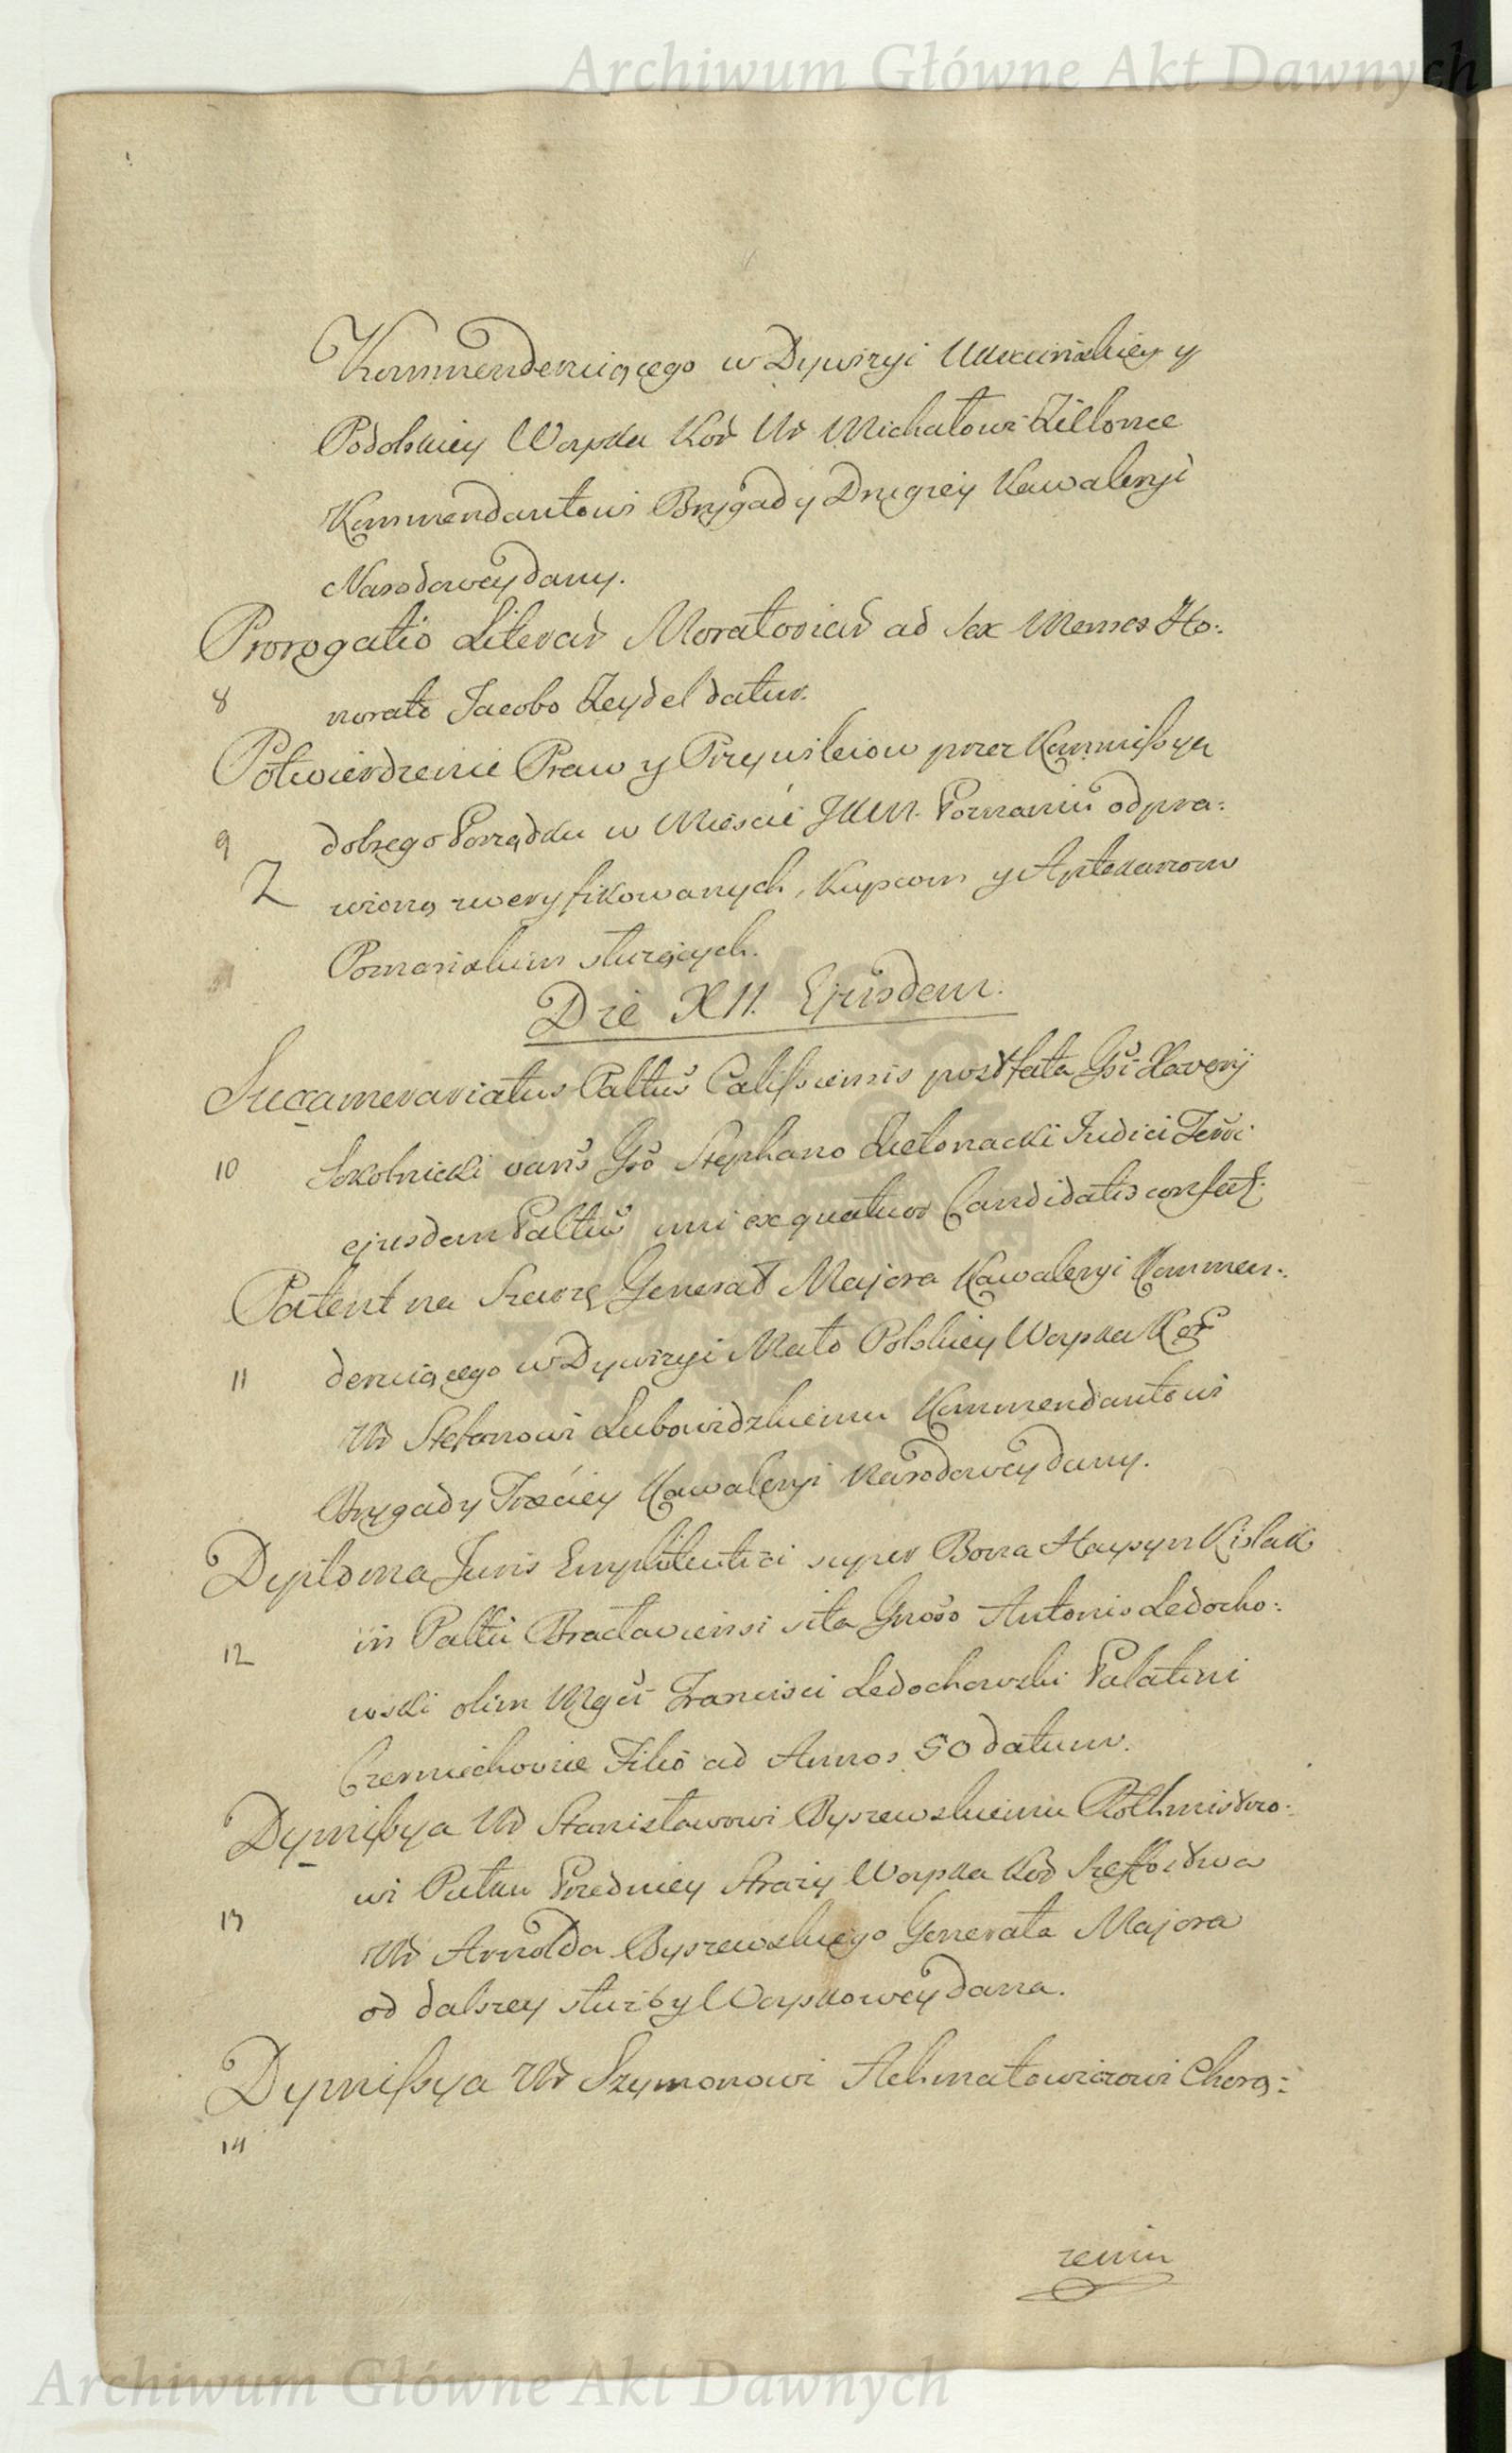 Archiwum Główne Akt Dawnych
Kommenderuiącego w Dywizyi Ukraińskiey y
Podolskiey Woyska Kor Ur Michałowi Zielonce
Kommendantowi Brygady Drugiey Kawaleryi
Narodowey dany.
Prorogatio Literar Moratoriar ad sex Menses Ho:
8 norato Jacobo Zeydel datur.
Potwierdzenie Praw y Przywileiow przez Kommissyą
9 dobrego Porządku w Mieście JKM. Poznaniu odpra:
Z wioną zweryfikowanych, Kupcom y Aptekarzom
Poznańskim służących.
Die XII. Ejusdem.
Succamerariatus Pallus Calissiensis post fata Gsi Xaverij
10 Sokolnicki vans Gso Stephano Kiełonacki Judici Terri
ejusdem Pallus uni ex quatuor Candidatis confert.
Patent na Szarżę Generał Majora Kawaleryi Kommen:
11 deruiącego w Dywizyi Mało Polskiey Woyska Kor
Ur Stefanowi Lubowidzkiemu Kommendantowi
Brygady Trzeciey Kawaleryi Narodowey dany.
Dyploma Juris Emphiteutici super Bona Haysyn Kislak
12 in Pallu Bracłaviensi sita Gnoso Antonio Ledocho:
wski olim Mgci Francisci Ledochowski Palatini
Czerniechoviae Filio ad Annos 50 datum.
Dymissya Ur Stanisławowi Byszewskiemu Rothmistrzo:
13 wi Pułku Przedniey Straży Woyska Kor Szeffostwa
Ur Arnolda Byszewskiego Generała Majora
od dalszey służby Woyskowey dana.
Dymissya Ur Szymonowi Achmatowiczowi Chorą:
14
żemu
Archiwum Główne Akt Dawnych